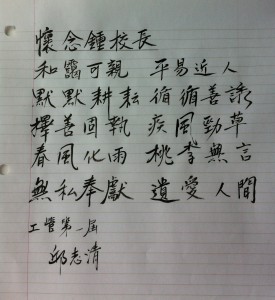 懷念鍾校長
和靄可親 平易近人
默默耕耘 循循善誘
擇善固執 疾風勁草
春風化雨 桃李無言
無私奉獻 遺愛人間
工管第一屆
邱志清